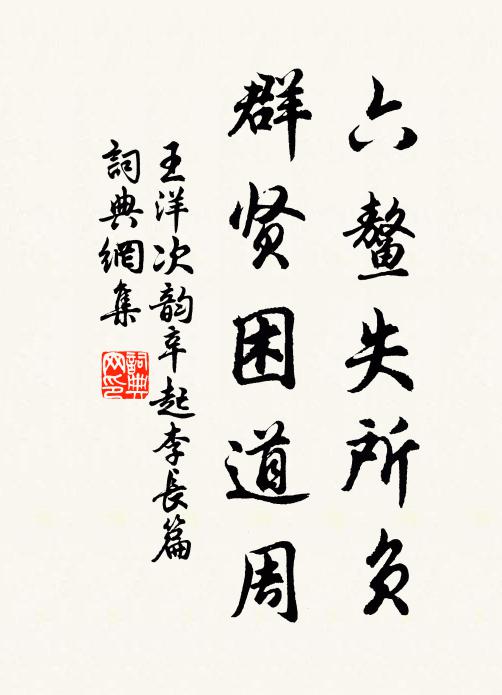 六鳌失所负
群贤困道周
王洋次韵卒起李長篇
詞典網集
詞典网印